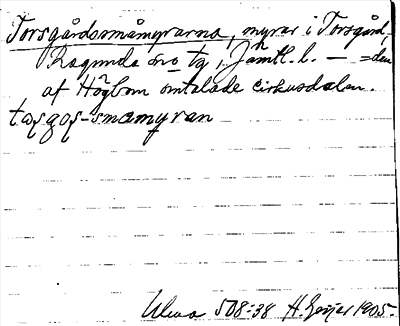 Torsgårdssmåmyrarna, myrar i Torsgård,
Ragunda sn o tg, Jämtl. l. — = den
af Högbom omtalade cirkusdalen.
tɔșgoș-smamyran
Ulma 508:38 H. Geijer 1905.